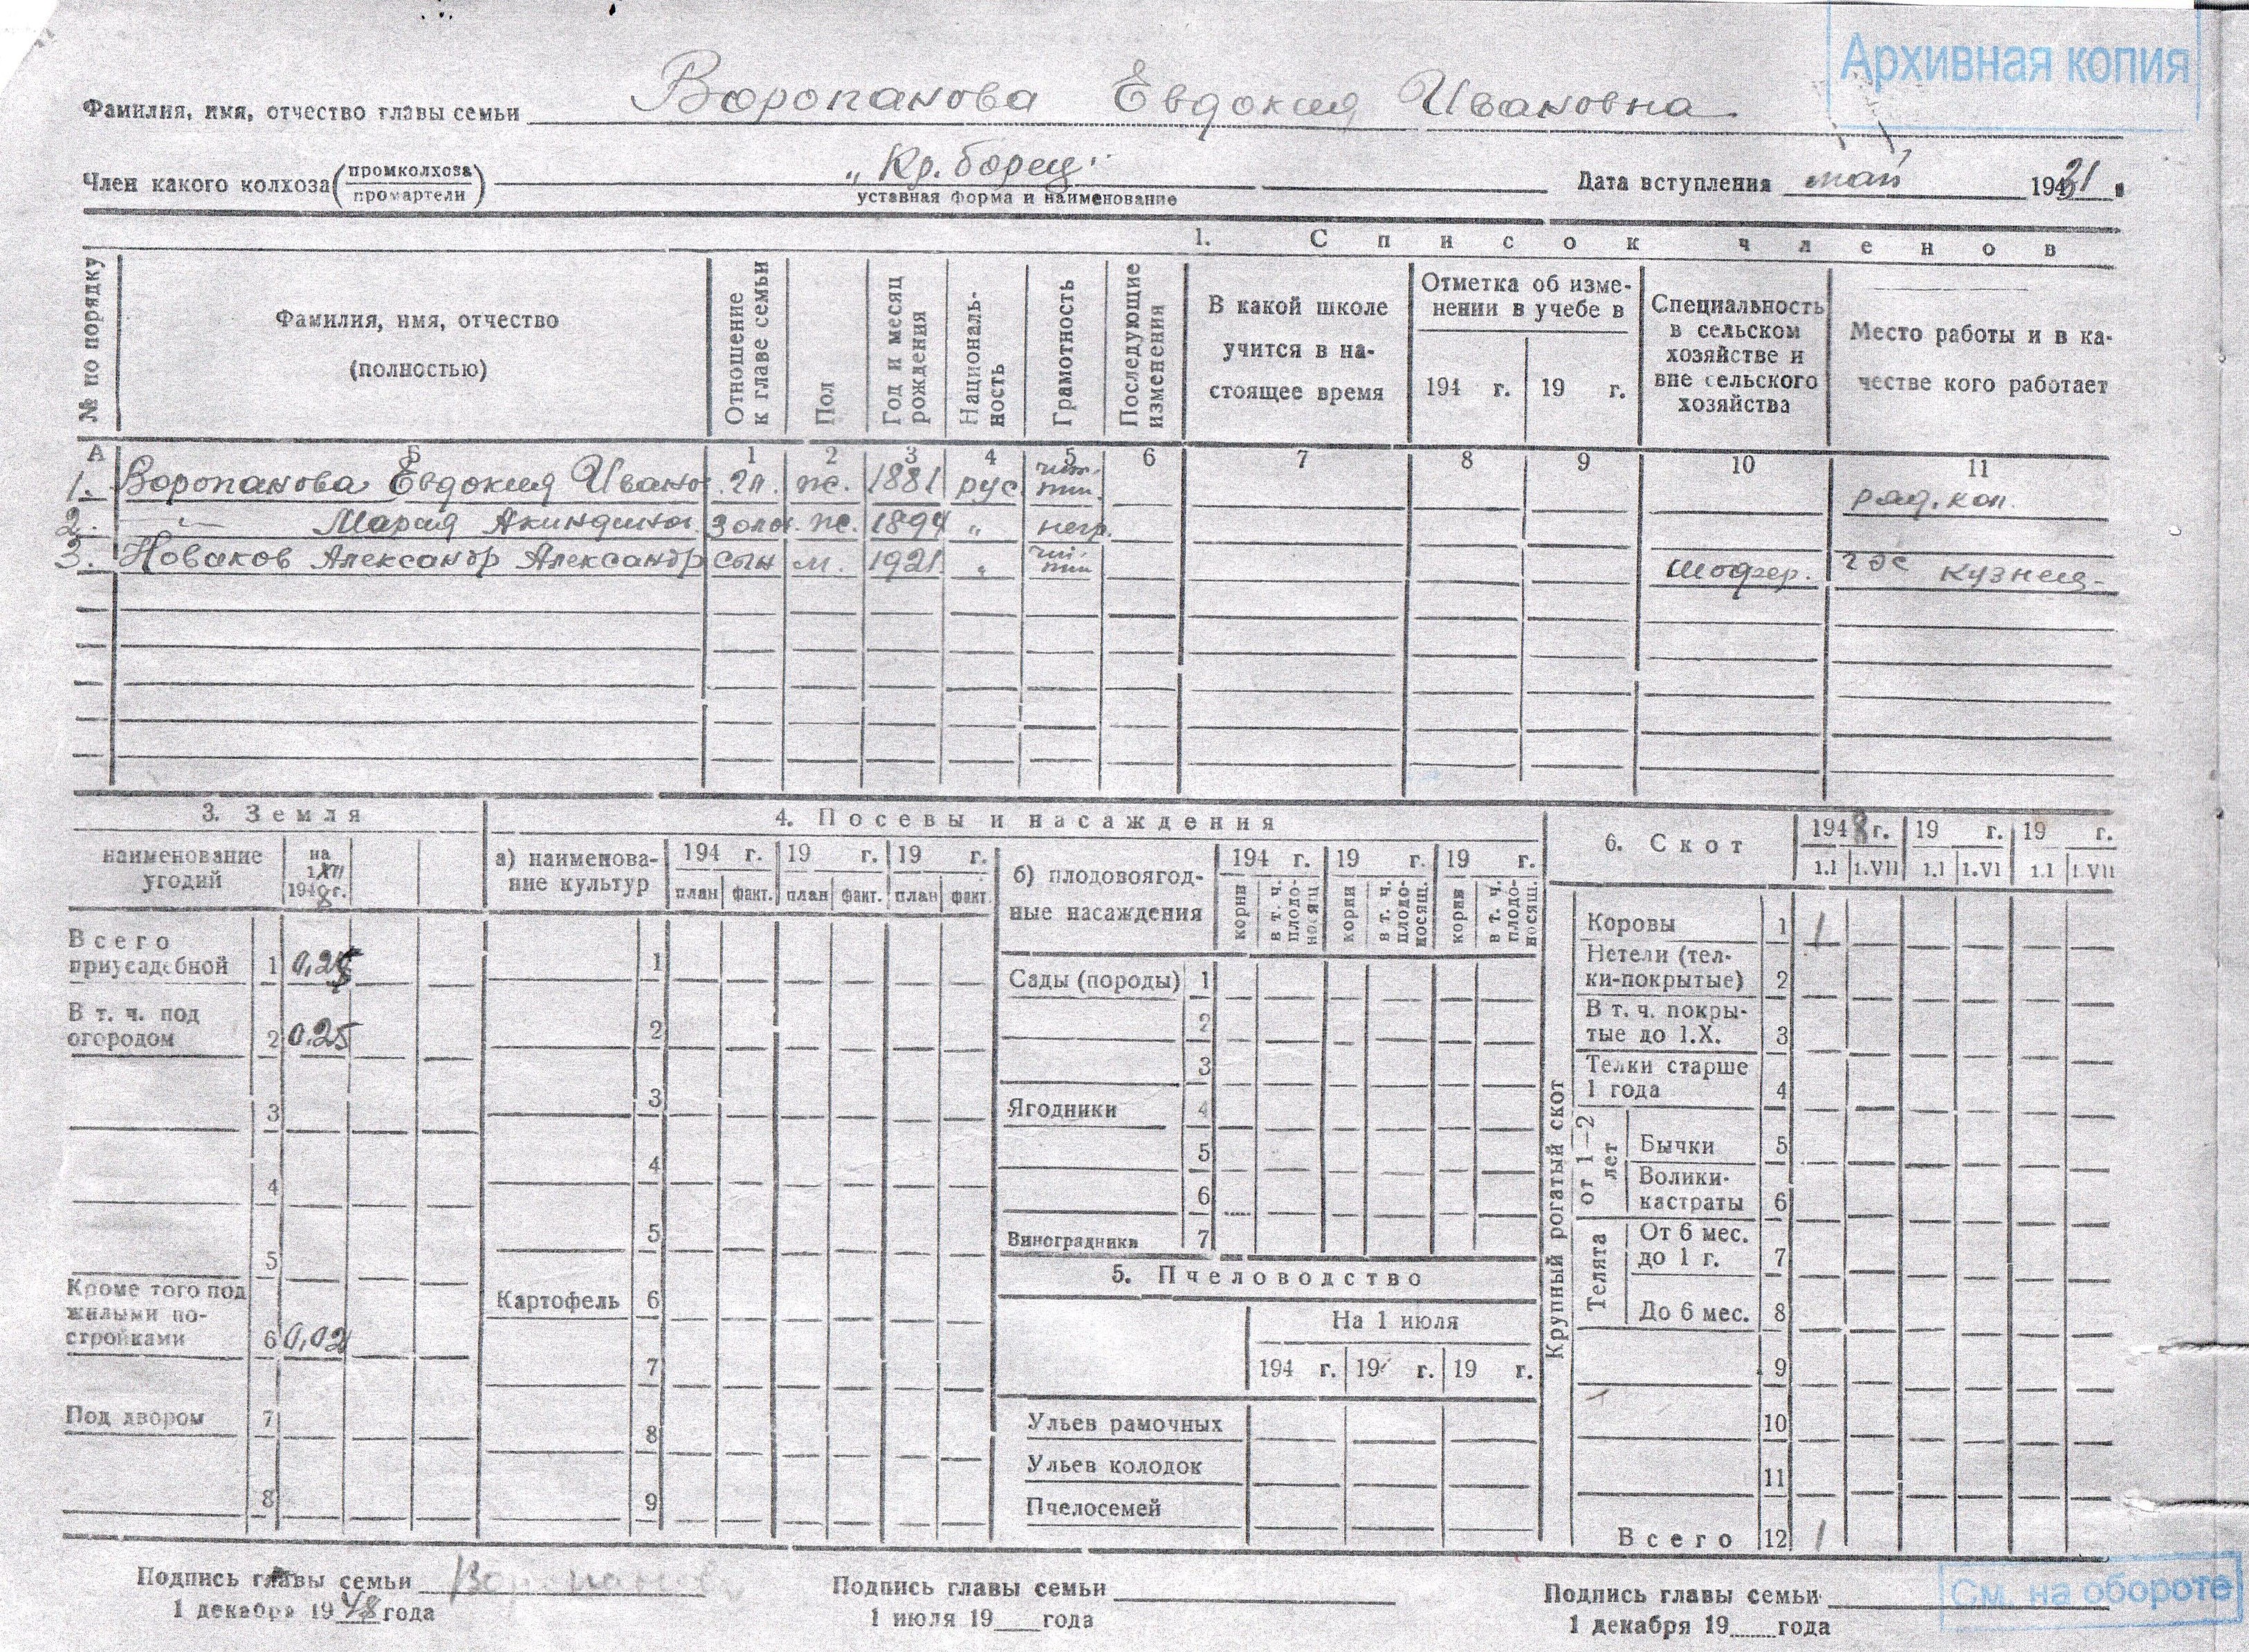 Архивная копия
Фамилия, имя, отчество главы семьи Воропанова Евдокия Ивановна
Член какого колхоза (промколхоза промартели) „Кр. борец" Дата вступления май 1931 г.
уставная форма и наименование
1. Список членов
№ по порядку
Фамилия, имя, отчество (полностью)
Отношение к главе семьи
Пол
Год и месяц рождения
Националь-ность
Грамотность
Последующие изменения
В какой школе учится в на-стоящее время
Отметка об изме-нении в учебе в
194 г. 19 г.
Специальность в сельском хозяйстве и вне сельского хозяйства
Место работы и в ка-честве кого работает
А Б 1 2 3 4 5 6 7 8 9 10 11
1. Воропанова Евдокия Ивано гл. ж. 1881 рус. ряд. кол.
2. —"— Мария Акиндино. золов. ж. 1894 „ негр.
3. Новаков Александр Александр сын м. 1921 „ шофер. гэс кузнец-
3. Земля
наименование угодий
на 1/XII 1948 г.
Всего приусадебной 1 0,25
В т. ч. под огородом 2 0.25
3
4
5
Кроме того под жилыми по-стройками 6 0,02
Под двором 7
8
4. Посевы и насаждения
а) наименова-ние культур
194 г. 19 г. 19 г.
план факт. план факт. план факт.
1
2
3
4
5
Картофель 6
7
8
9
б) плодовоягод-ные насаждения
194 г. 19 г. 19 г.
корни в т. ч. плодо-носящ. корни в т. ч. плодо-носящ. корни в т. ч. плодо-носящ.
Сады (породы) 1
2
3
Ягодники 4
5
6
Виноградники 7
5. Пчеловодство
На 1 июля
194 г. 19 г. 19 г.
Ульев рамочных
Ульев колодок
Пчелосемей
6. Скот
1948 г. 19 г. 19 г.
1.I 1.VII 1.I 1.VI 1.I 1.VII
Крупный рогатый скот
Коровы 1 1
Нетели (тел-ки-покрытые) 2
В т. ч. покры-тые до 1.X. 3
Телки старше 1 года 4
от 1—2 лет
Бычки 5
Волики-кастраты 6
Телята
От 6 мес. до 1 г. 7
До 6 мес. 8
9
10
11
Всего 12 1
Подпись главы семьи Воропанова
1 декабря 1948 года
Подпись главы семьи
1 июля 19 года
Подпись главы семьи
1 декабря 19 года
См. на обороте